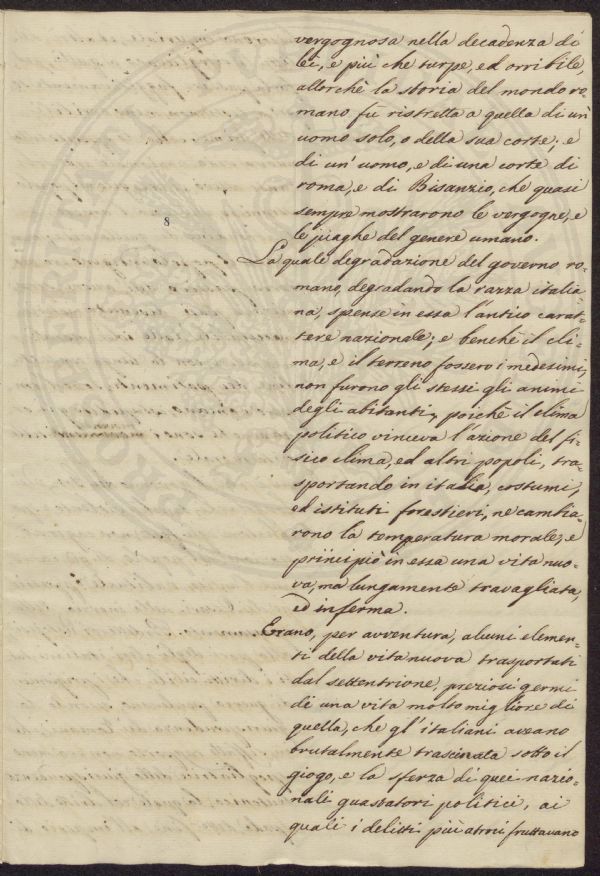 vergognosa nella decadenza di
lei, e più che turpe, ed orribile,
allorchè la storia del mondo ro=
mano fù ristretta a quella di un
uomo solo, o della sua corte; e
di un' uomo, e di una corte di
roma, e di Bisanzio, che quasi
sempre mostrarono le vergogne, e
8
le piaghe del genere umano.
La quale degradazione del governo ro=
mano, degradando la razza italia=
na, spense in essa l'antico carat=
tere nazionale; e benchè il cli=
ma, e il terreno fossero i medesimi,
non furono gli stessi gli animi
degli abitanti, poichè il clima
politico vinceva l'azione del fi=
sico clima, ed altri popoli, tra=
sportando in italia, costumi,
ed istituti forestieri, ne cambia=
rono la temperatura morale, e
principiò in essa una vita nuo=
va, ma lungamente travagliata,
ed inferma.
Erano, per avventura, alcuni elemen=
ti della vita nuova trasportati
dal settentrione, preziosi germi
di una vita molto migliore di
quella, che gl'italiani aveano
brutalmente trascinata sotto il
giogo, e la sferza di quei nazio=
nali guastatori politici, ai
quali i delitti più atroci fruttavano